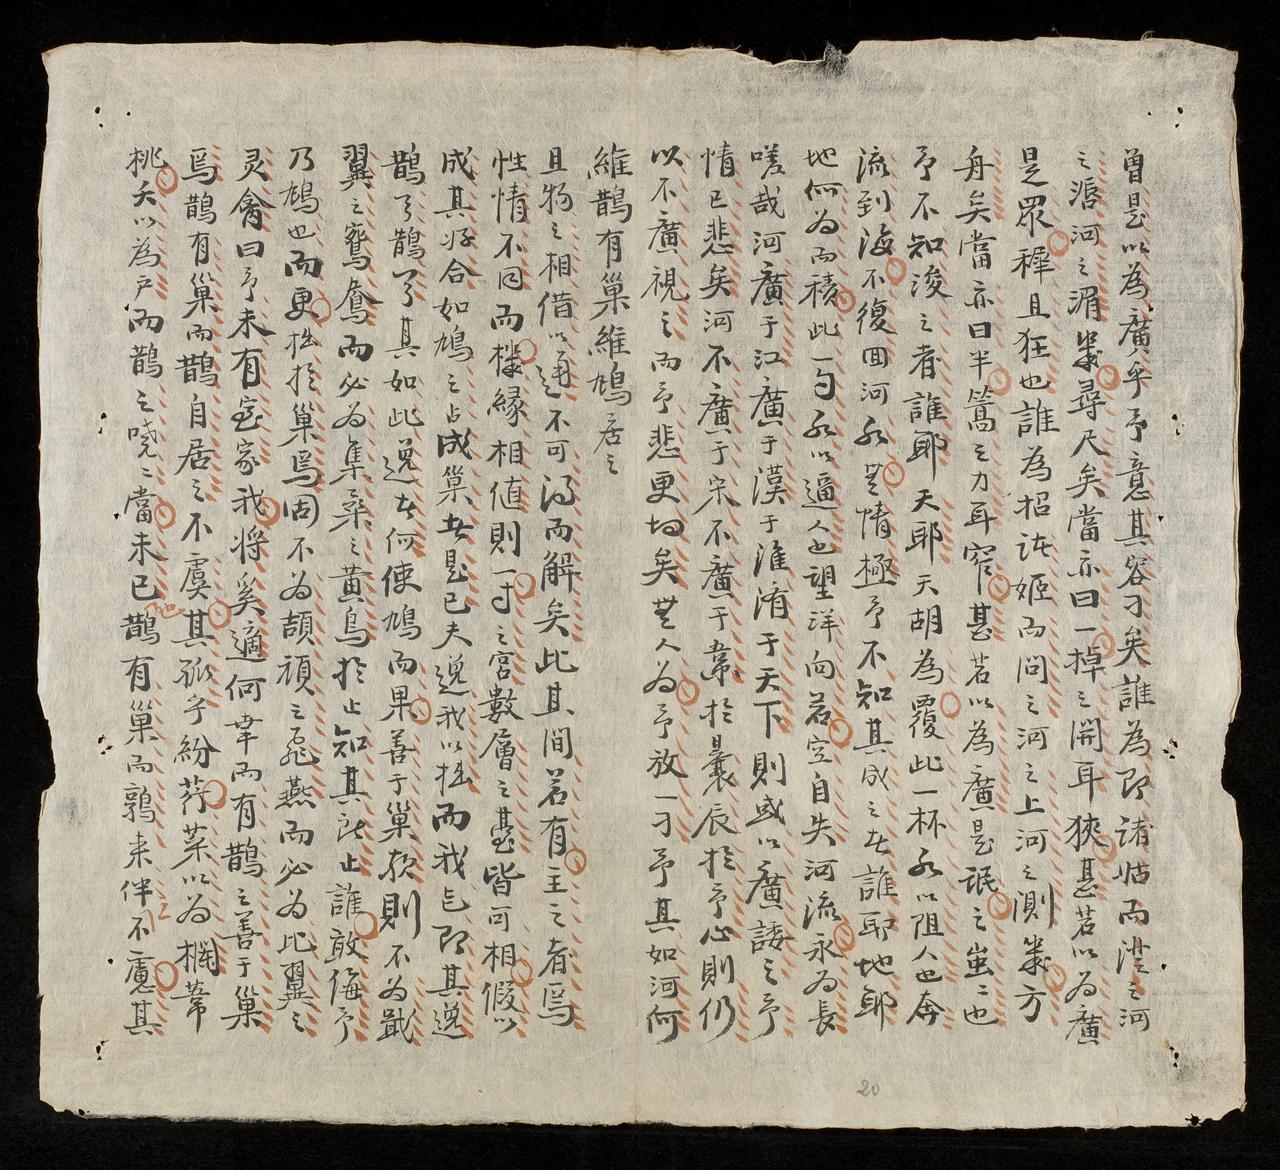 曾是以為廣乎予意其容刁矣誰為即諸岵而澄之河
之滸河之湄幾尋尺矣當亦曰一掉之開耳狹甚若以為廣
是眾穉且狂也誰為招諸姬而問之河之上河之測幾方
舟矣當亦曰半篙之力耳窄甚若以為廣是氓之蚩〻也
予不知浚之者誰耶天耶天胡為覆此一杯水以阻人也奔
流到海不復囬河水無情極予不知其成之者誰耶地耶
地何為而積此一勺水以逼人也望洋向若空自失河流永為長
嗟哉河廣于江廣于漢于淮淯于天下則或以廣諉之予
情已悲矣河不廣于宋不廣于韋於曩辰於予心則仍
以不廣視之而予悲更切矣無人為予放一刁予其如河何
維鵲有巢維鳩居之
且物之相借以通不可淂而解矣此其間若有主之者焉
性情不同而機緣相值則一寸之宮數層之臺皆可相假以
成其好合如鳩之占成巢者是已夫邈我以拙而我忘即其邈
鵲兮鵲兮其如此邈者何使鳩而果善于巢欤則不為戢
翼之鴛鴦而必為集桑之黃鳥於止知其所止誰敢侮予
乃鳩也而更拙於巢焉固不為頡頏之飛燕而必為比翼之
灵禽曰予未有室家我将奚適何幸而有鵲之善于巢
焉鵲有巢而鵲自居之不虞其孤乎紛荇菜以為櫚葦
桃夭以為户而鵲之嘵〻當未已也鵲有巢而鶉来伴之不慮其
20